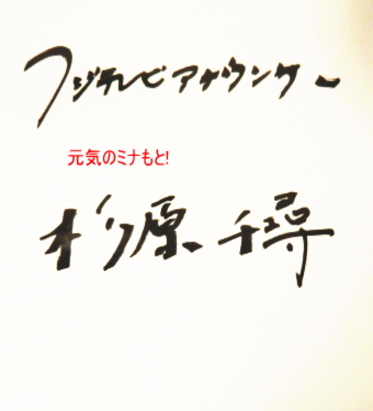 フジテレビアナウンサー
元気のミナもと!
杉原千尋